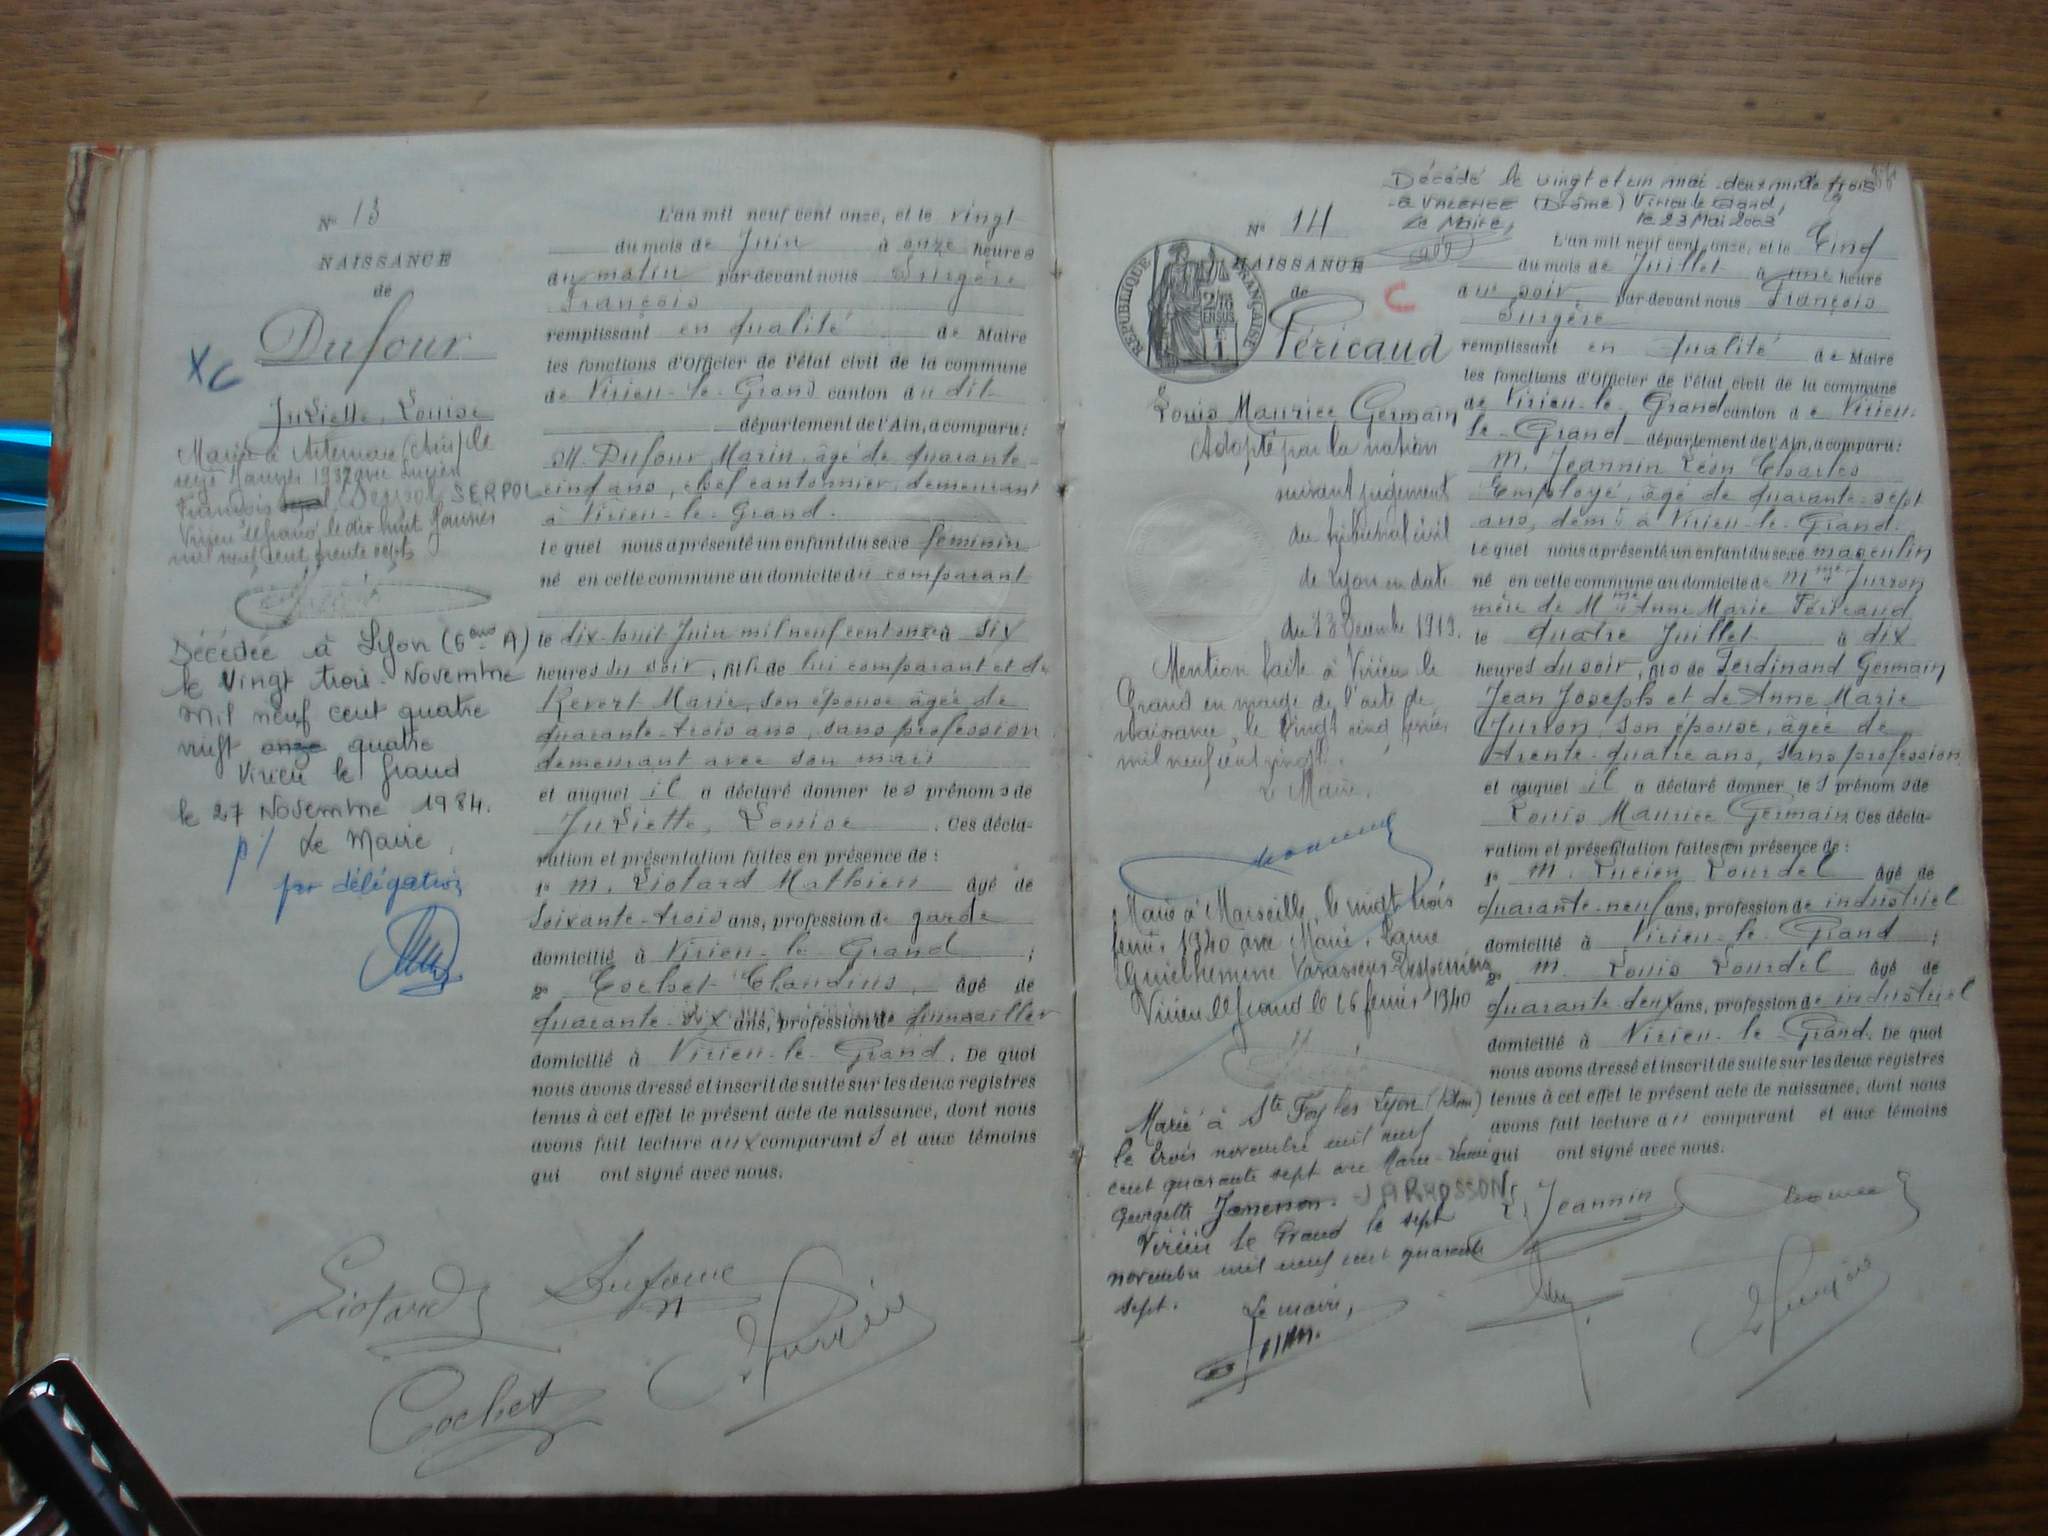 N° 13
NAISSANCE
de
Dufour
Juliette, Louise
Mariée à Artemare (Ain) le
seize Janvier 1937 avec Lucien
François SERPOL
Virieu le Grand, le dix huit Janvier
mil neuf cent trente sept
Décédée à Lyon (6ème A)
le Vingt trois Novembre
mil neuf cent quatre
vingt onze quatre
Virieu le Grand
le 27 Novembre 1984.
Le Maire
p/
par délégation
L'an mil neuf cent onze, et le vingt
du mois de Juin à onze heures
du matin par-devant nous Surgère
François
remplissant en qualité de Maire
les fonctions d'Officier de l'état civil de la commune
de Virieu-le-Grand canton du dit
département de l'Ain, a comparu:
M. Dufour Marin, âgé de quarante-
cinq ans, chef cantonnier, demeurant
à Virieu-le-Grand.
lequel nous a présenté un enfant du sexe féminin
né en cette commune au domicile du comparant
le dix-huit Juin mil neuf cent onze à six
heures du soir, fille de lui comparant et de
Revert Marie, son épouse âgée de
quarante-trois ans, sans profession
demeurant avec son mari
et auquel il a déclaré donner les prénoms de
Juliette, Louise. Ces décla-
ration et présentation faites en présence de:
1° M. Liotard Mathieu âgé de
soixante-trois ans, profession de garde
domicilié à Virieu-le-Grand;
2° Cochet Claudius, âgé de
quarante-six ans, profession de quincailler
domicilié à Virieu-le-Grand. De quoi
nous avons dressé et inscrit de suite sur les deux registres
tenus à cet effet le présent acte de naissance, dont nous
avons fait lecture aux comparants et aux témoins
qui ont signé avec nous.
Liotard Dufour
Cochet
Décédé le vingt et un mai deux mille trois
à VALENCE (Drôme) Virieu le Grand,
Le Maire, le 23 Mai 2003
N° 14
RÉPUBLIQUE FRANÇAISE
NAISSANCE
de
C
Péricaud
Louis Maurice Germain
Adopté par la nation
suivant jugement
du tribunal civil
de Lyon en date
du 13 Décembre 1919.
Mention faite à Virieu le
Grand en marge de l'acte de
naissance, le vingt cinq février
mil neuf cent vingt.
Le Maire.
Marié à Marseille, le vingt trois
février 1940 avec Marie,
Guilhermine
Virieu le Grand le 26 février 1940
Marié à Ste Foy les Lyon (Rhône)
le trois novembre mil neuf
cent quarante sept avec Marie-Louise
Georgette JARROSSON
Virieu le Grand le sept
novembre mil neuf cent quarante
sept.
Le maire,
L'an mil neuf cent onze, et le Cinq
du mois de Juillet à une heure
du soir par-devant nous François
Surgère
remplissant en qualité de Maire
les fonctions d'Officier de l'état civil de la commune
de Virieu-le-Grand canton de Virieu-
le-Grand département de l'Ain, a comparu:
M. Jeannin Léon Charles
Employé, âgé de quarante-sept
ans, demt à Virieu-le-Grand.
lequel nous a présenté un enfant du sexe masculin
né en cette commune au domicile de Mme Jurron
mère de Mme Anne Marie Péricaud
le quatre Juillet à dix
heures du soir, fils de Ferdinand Germain
Jean Joseph et de Anne Marie
Jurron son épouse, âgée de
trente-quatre ans, sans profession
et auquel il a déclaré donner les prénoms de
Louis Maurice Germain Ces décla-
ration et présentation faites en présence de:
1° M. Lucien Lourdel âgé de
quarante-neuf ans, profession de industriel
domicilié à Virieu-le-Grand;
2° M. Louis Lourdel âgé de
quarante-deux ans, profession de industriel
domicilié à Virieu-le-Grand. De quoi
nous avons dressé et inscrit de suite sur les deux registres
tenus à cet effet le présent acte de naissance, dont nous
avons fait lecture au comparant et aux témoins
qui ont signé avec nous.
Jeannin